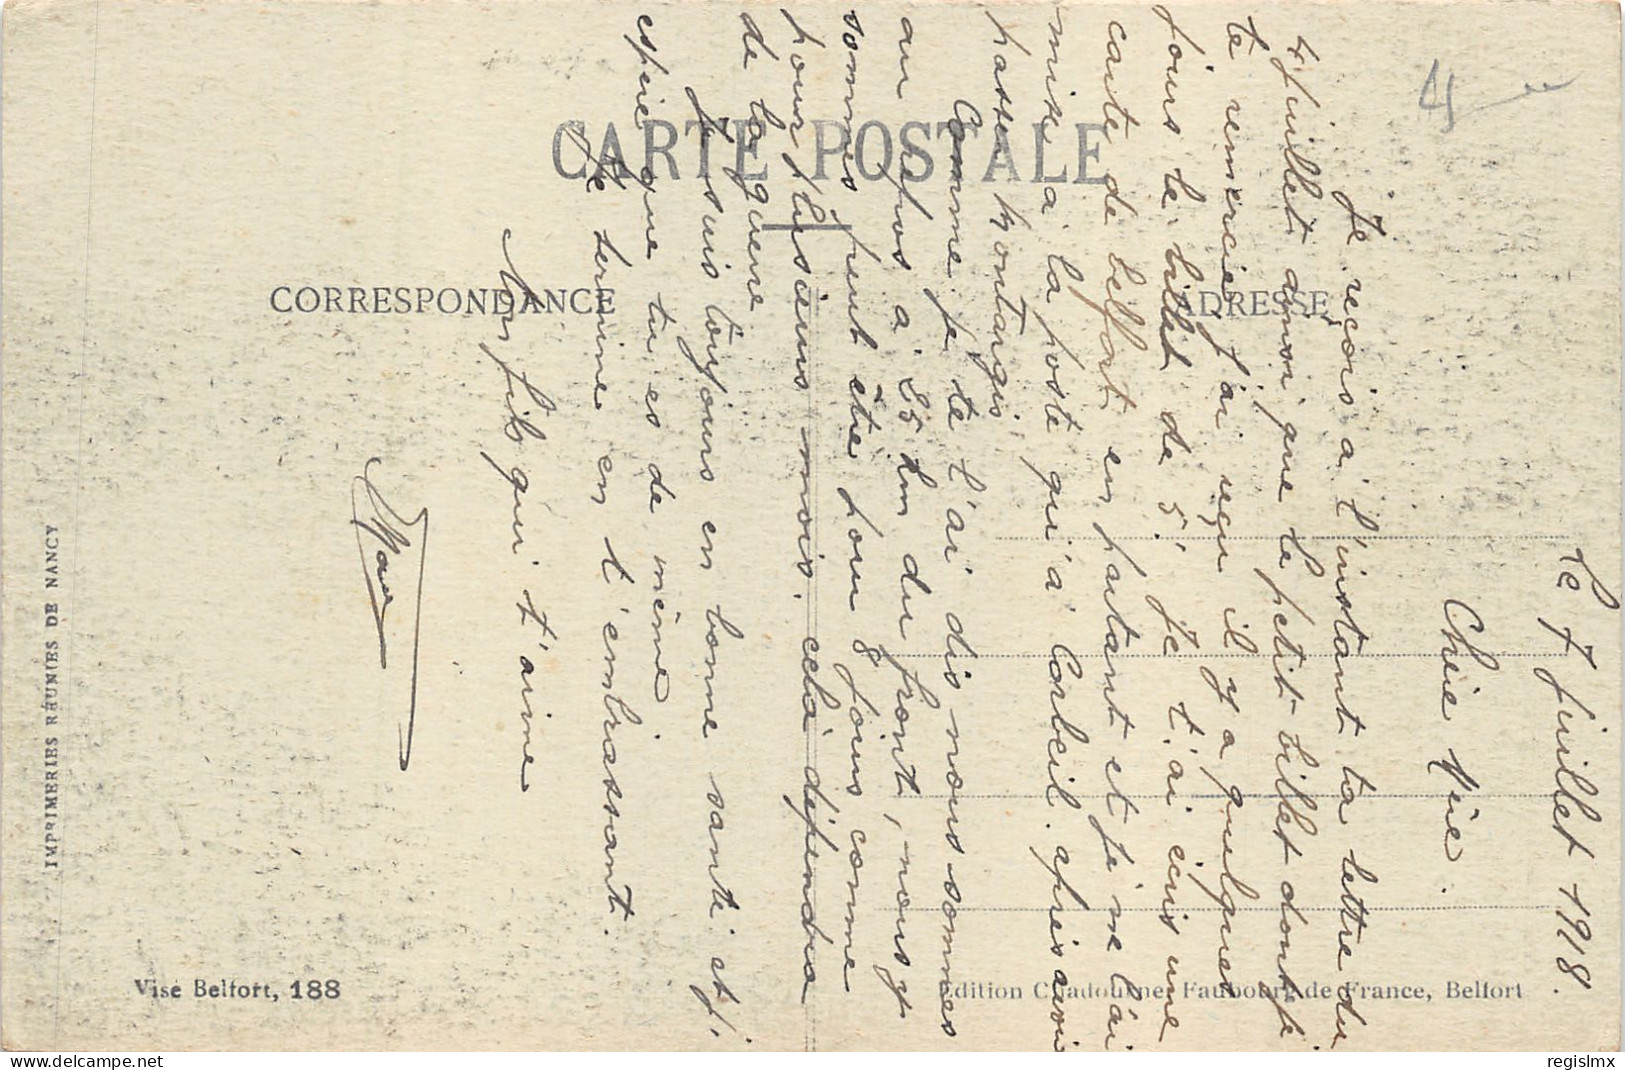 CARTE POSTALE
CORRESPONDANCE
ADRESSE
Le 7 Juillet 1918.
Chère Mère.
Je reçois à l'instant ta lettre du
4 Juillet ainsi que le petit billet dont je
te remercie, j'ai reçu il y a quelques
jours le billet de 5! Je t'ai écris une
carte de belfort en partant et je ne l'ai
mise à la poste qu'à Corbeil. après avoir
passer Montargis
Comme je te l'ai dis nous sommes
au repos à 25 km du front, nous y
sommes peut être pour 8 jours comme
pour plusieurs mois. cela dépendra
de la guerre
Je suis toujours en bonne santé et j'
espère que tu es de même.
Je termine en t'embrassant.
Ton fils qui t'aime
4
IMPRIMERIES RÉUNIES DE NANCY
Visé Belfort, 188
Edition Chadourne, Faubourg de France, Belfort
regislmx